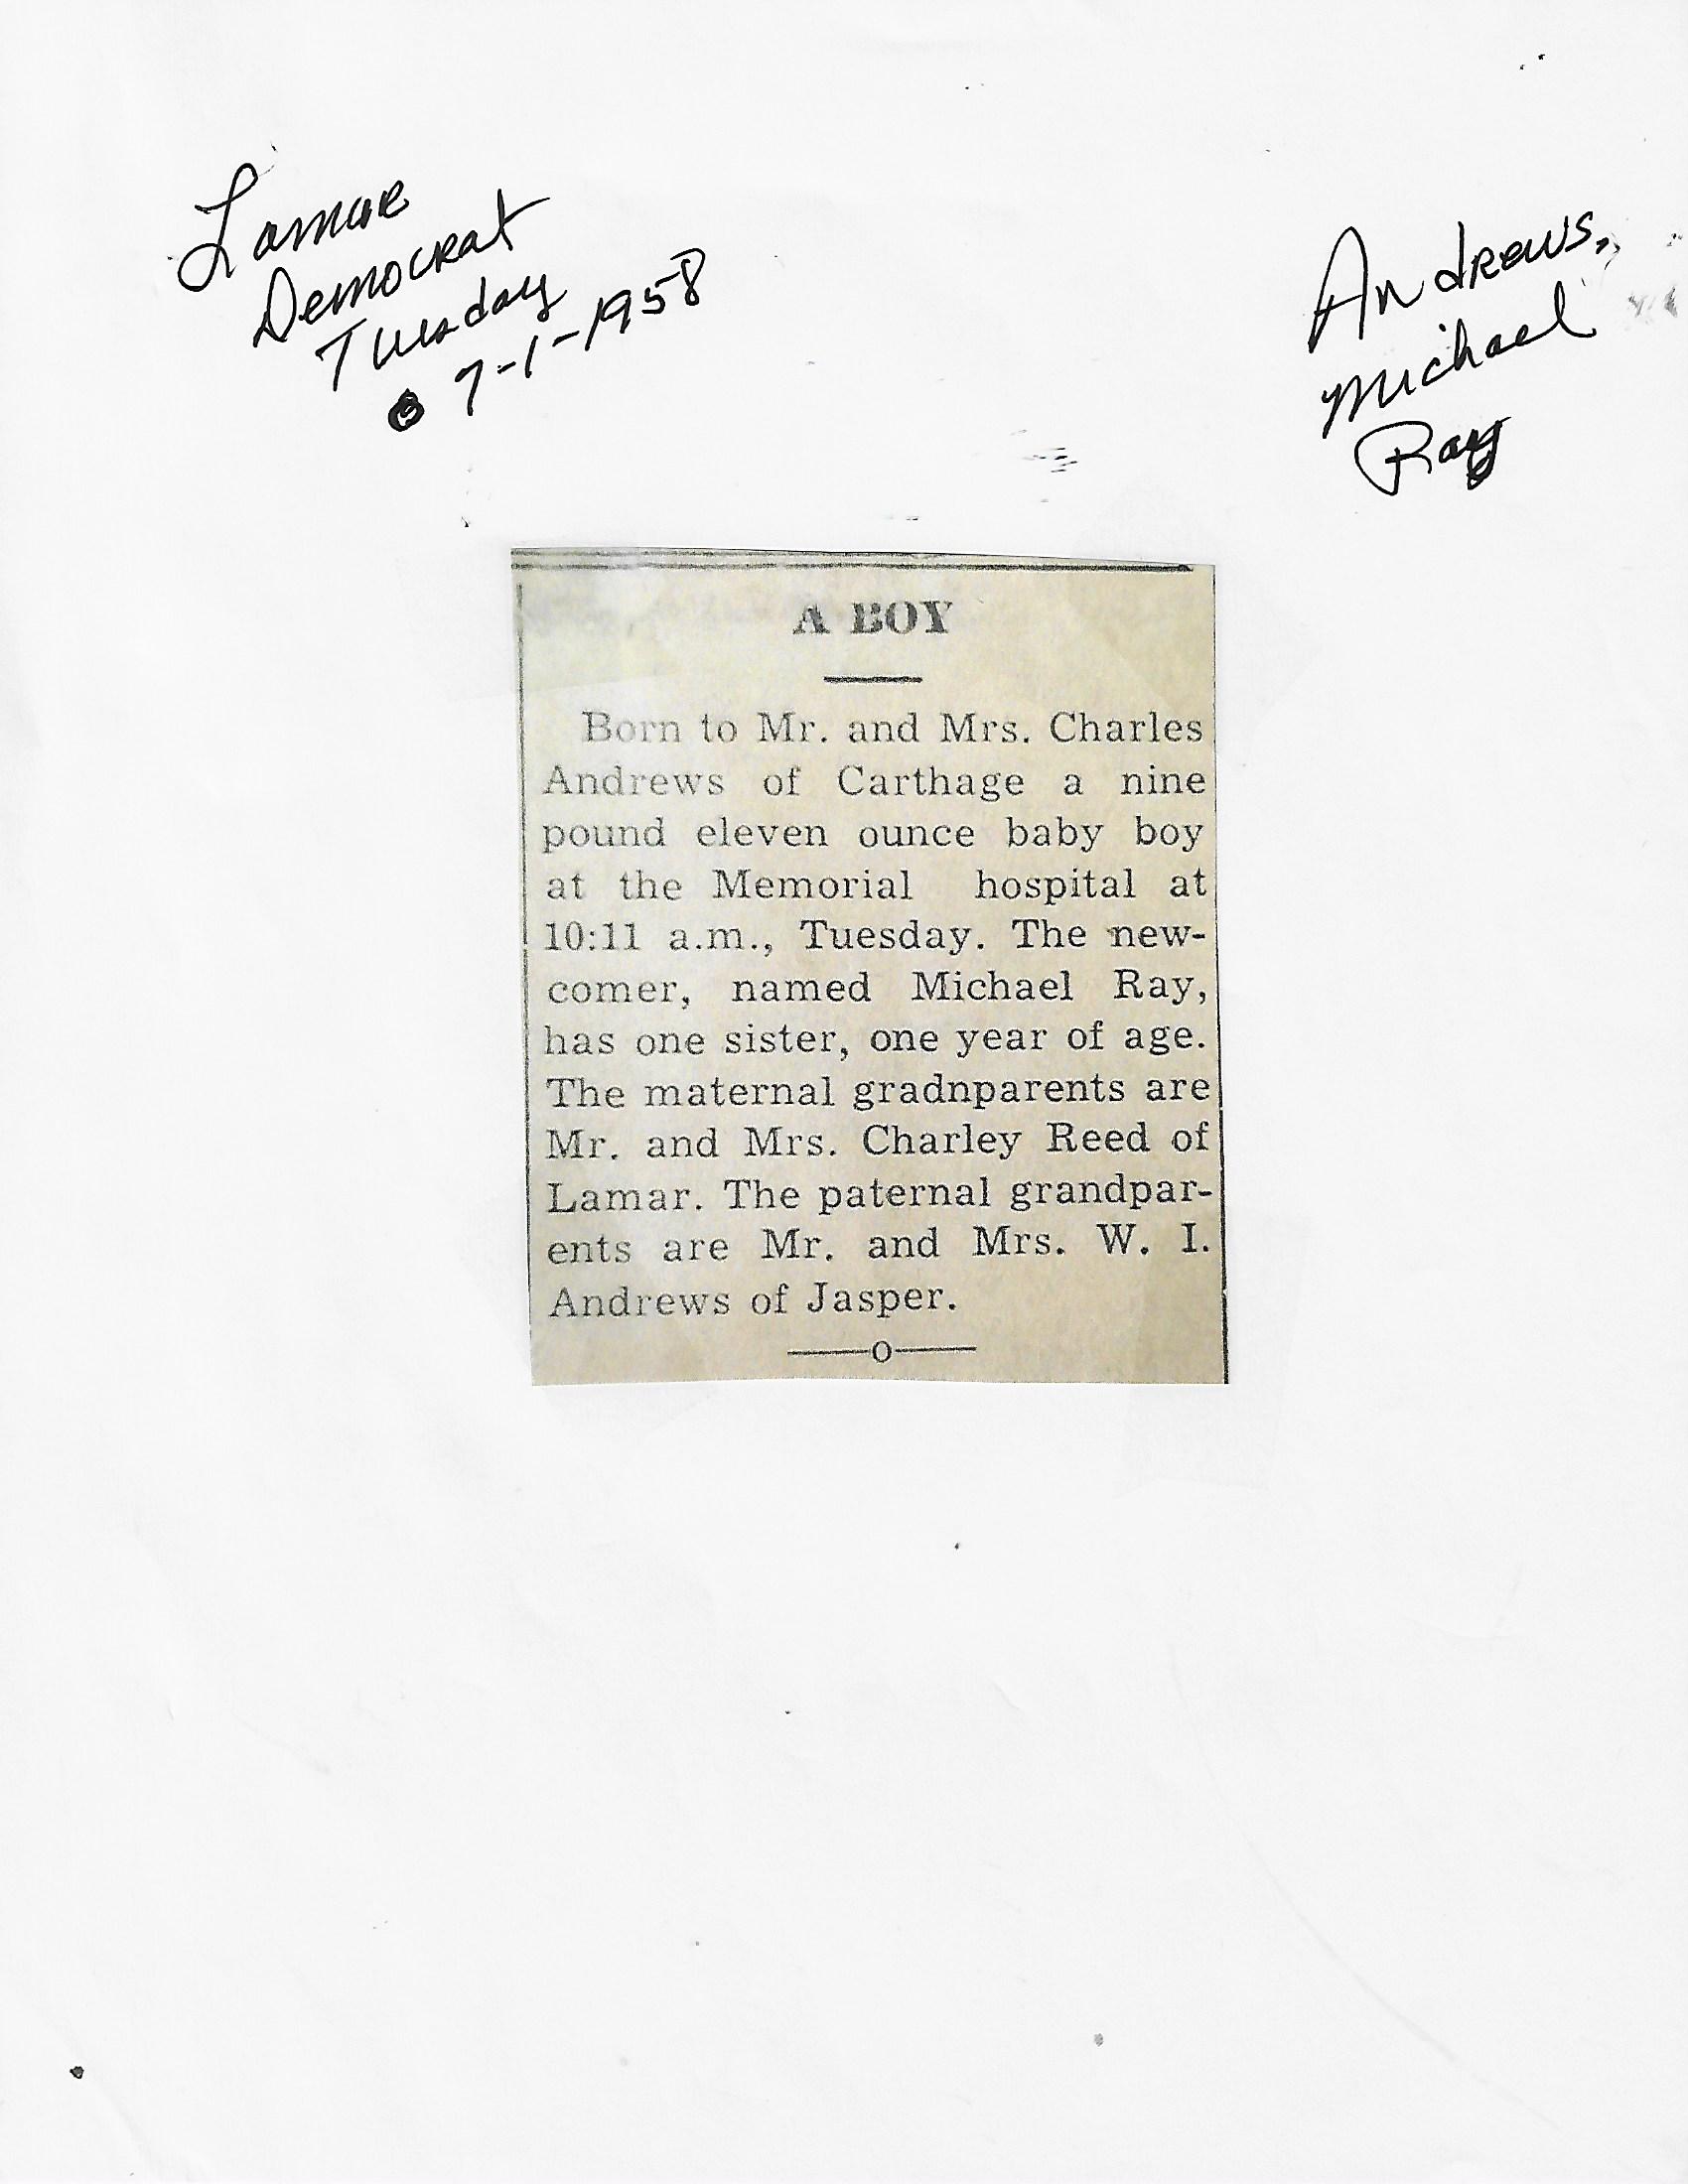 Lamar
Democrat
Tuesday
7-1-1958
Andrews,
Michael
Ray
A BOY
Born to Mr. and Mrs. Charles
Andrews of Carthage a nine
pound eleven ounce baby boy
at the Memorial hospital at
10:11 a.m., Tuesday. The new-
comer, named Michael Ray,
has one sister, one year of age.
The maternal gradnparents are
Mr. and Mrs. Charley Reed of
Lamar. The paternal grandpar-
ents are Mr. and Mrs. W. I.
Andrews of Jasper.
——o——